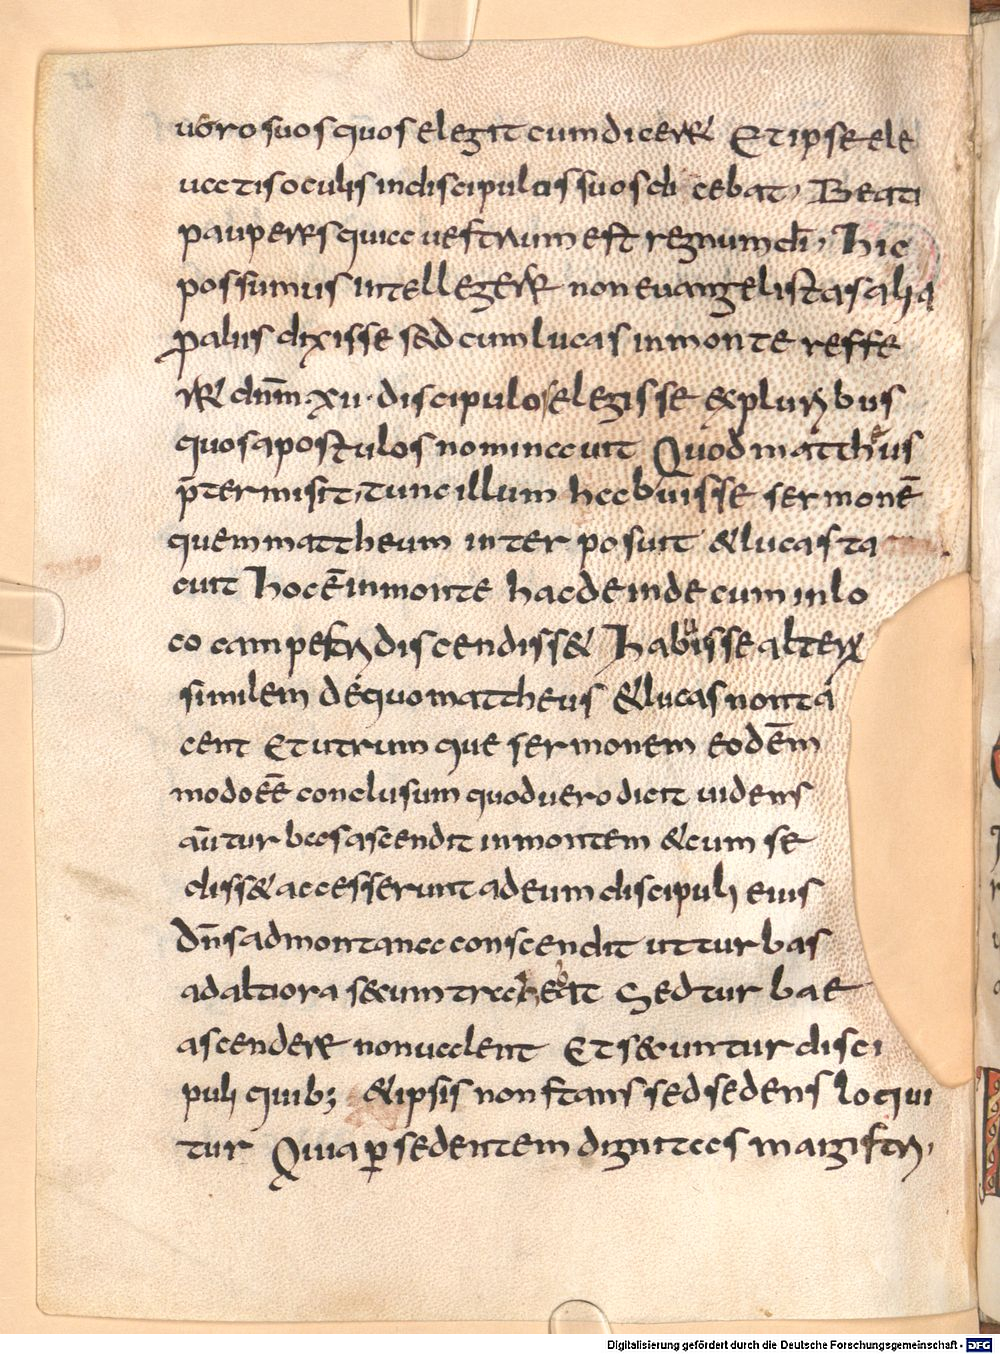 uoro suos quos elegit cum diceret Et ipse ele
uatis oculis in discipulis suos di cebat, Beati
pauperes quia uestrum est regnum dī, hic
possumus intellegere non euangelistas alia
p aliis dixisse sed cum lucas in monte reffe
ret dnm̄ xii discipulos elegisse ex pluribus
quos apostulos nominauit Quod mattheus
p̄termisit, tunc illum habuisse sermonē
quem mattheum inter posuit & lucas ta
cuit hoc ē in monte hac deinde cum in lo
co campestri discendiss& habuisse alter
similem de quo mattheus & lucas non ta
cent Et utrum que sermonem eodēm
modo eē conclusum quod uero dicit uidens
aūt turbas ascendit in montem & cum se
diss& accesserunt ad eum discipuli eius
Dn̄s ad montana conscendit ut turbas
ad altiora secum traheret Sed turbae
ascendere non ualent Et secuntur disci
puli quib; & ipsis non stans sed sedens loqui
tur Quia p sedentem dignitas magistri,
Digitalisierung gefördert durch die Deutsche Forschungsgemeinschaft - DFG